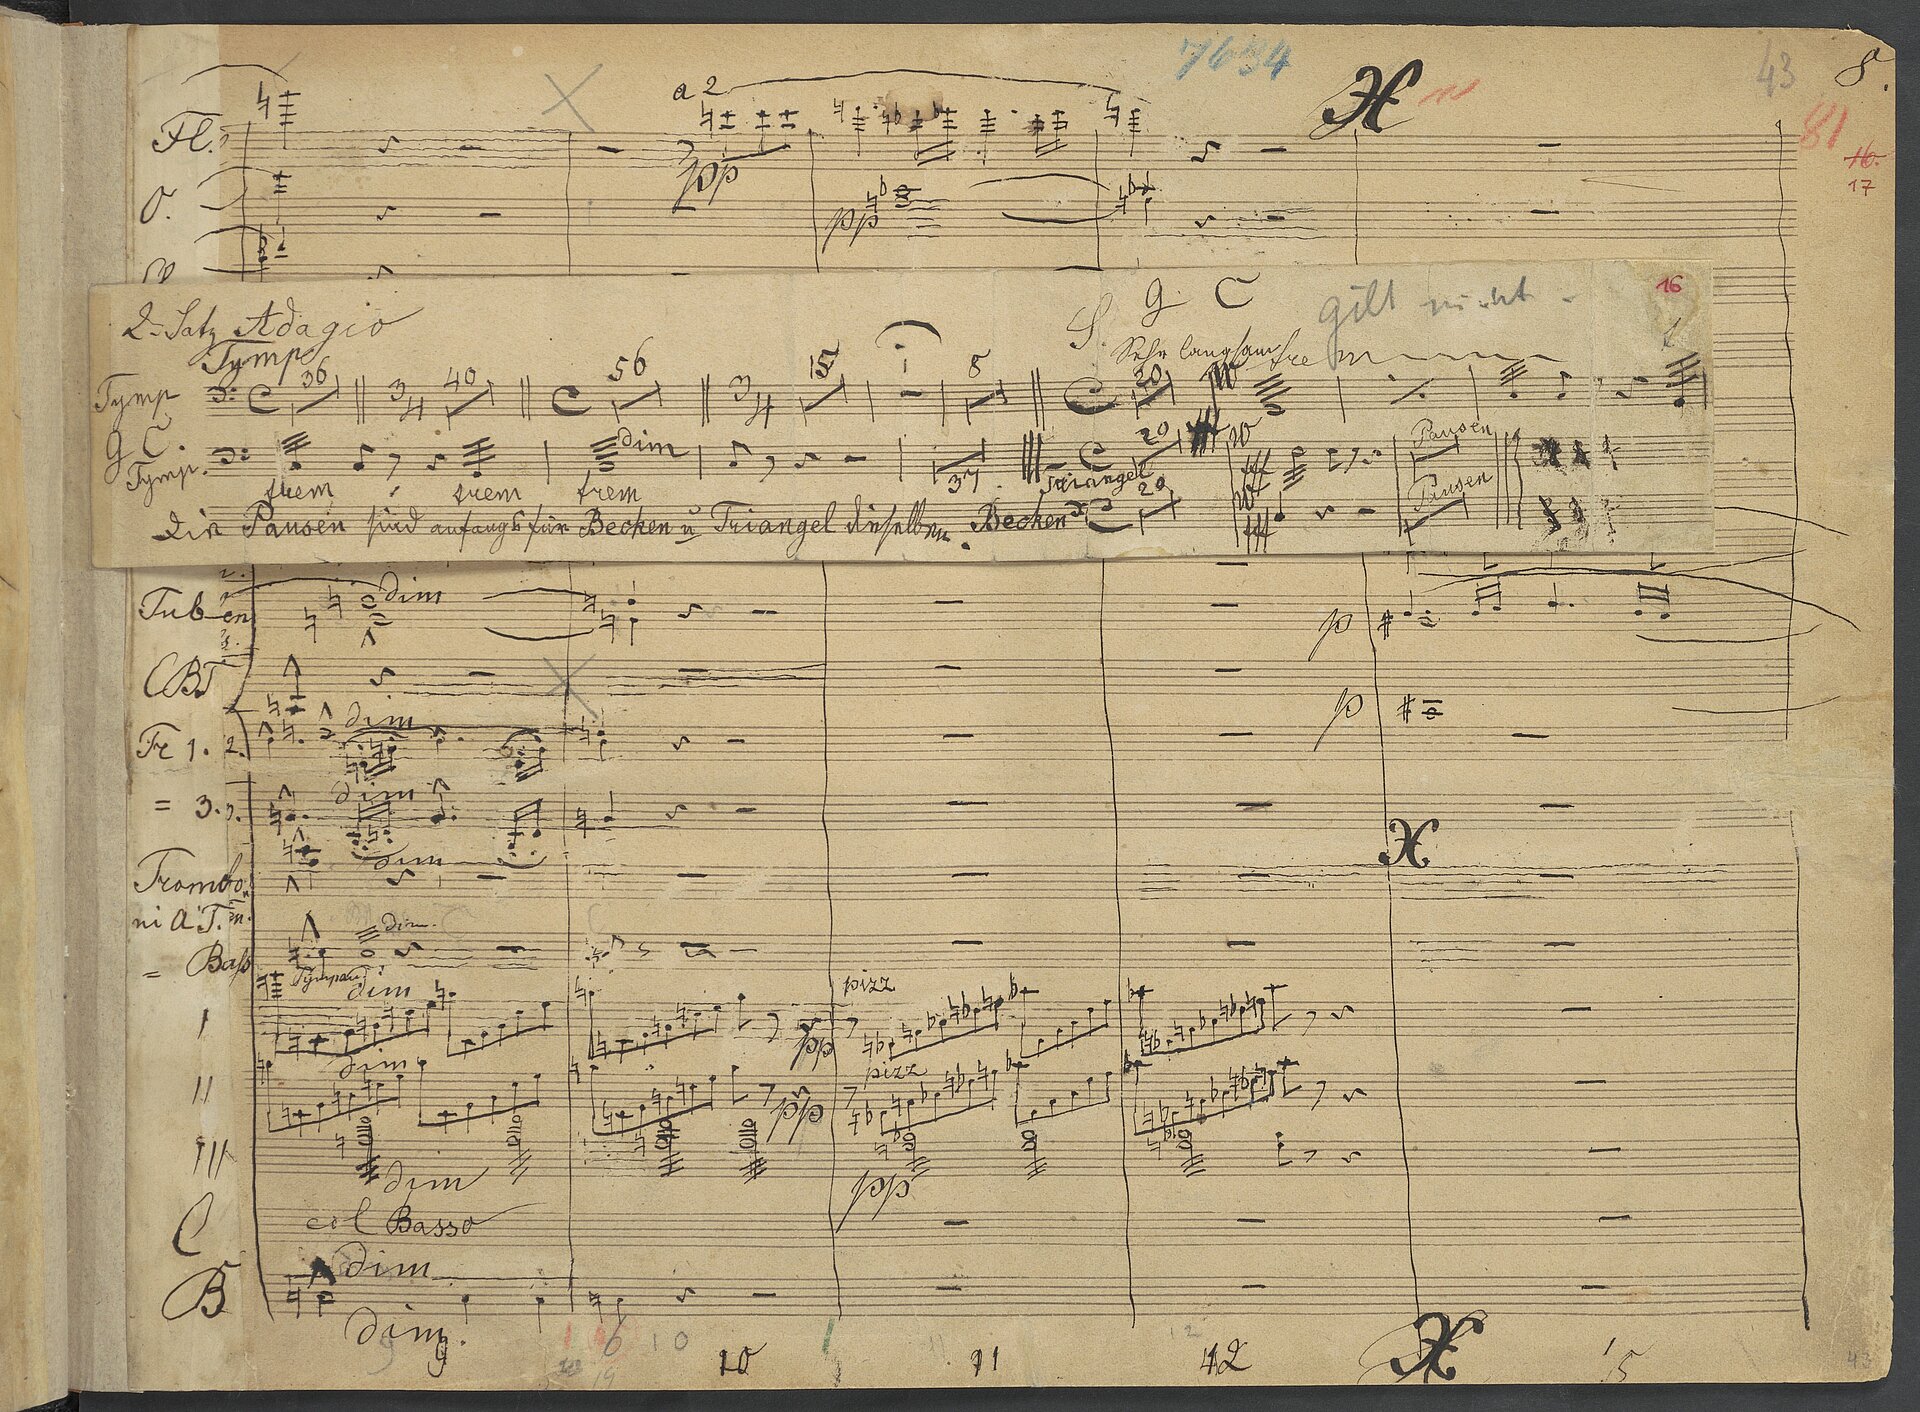 7634
43
8.
a 2
X
81
Fl.
pp
16.
17
O.
pp
G. C
gilt nicht
16
2. Satz Adagio
S.
Tymp
Sehr langsam
Tymp
36
3/4
40
56
3/4
15
1
8
20
G C.
dim
20
W
Pausen
Tymp.
37
Triangel
fff
trem
trem
trem
20
Pausen
Die Pausen sind anfangs für Becken u Triangel dieselben.
Becken
fff
dim
Tuben
p
CBT
p
dim
Tr 1. 2.
dim
= 3.
X
dim
Trombo
ni A. T.
dim.
= Bass
Tympani
dim
pizz
I
pp
dim
pizz
II
pp
III
dim
pp
C
col Basso
dim
B
dim
9
10
10
11
11
12
12
X
15